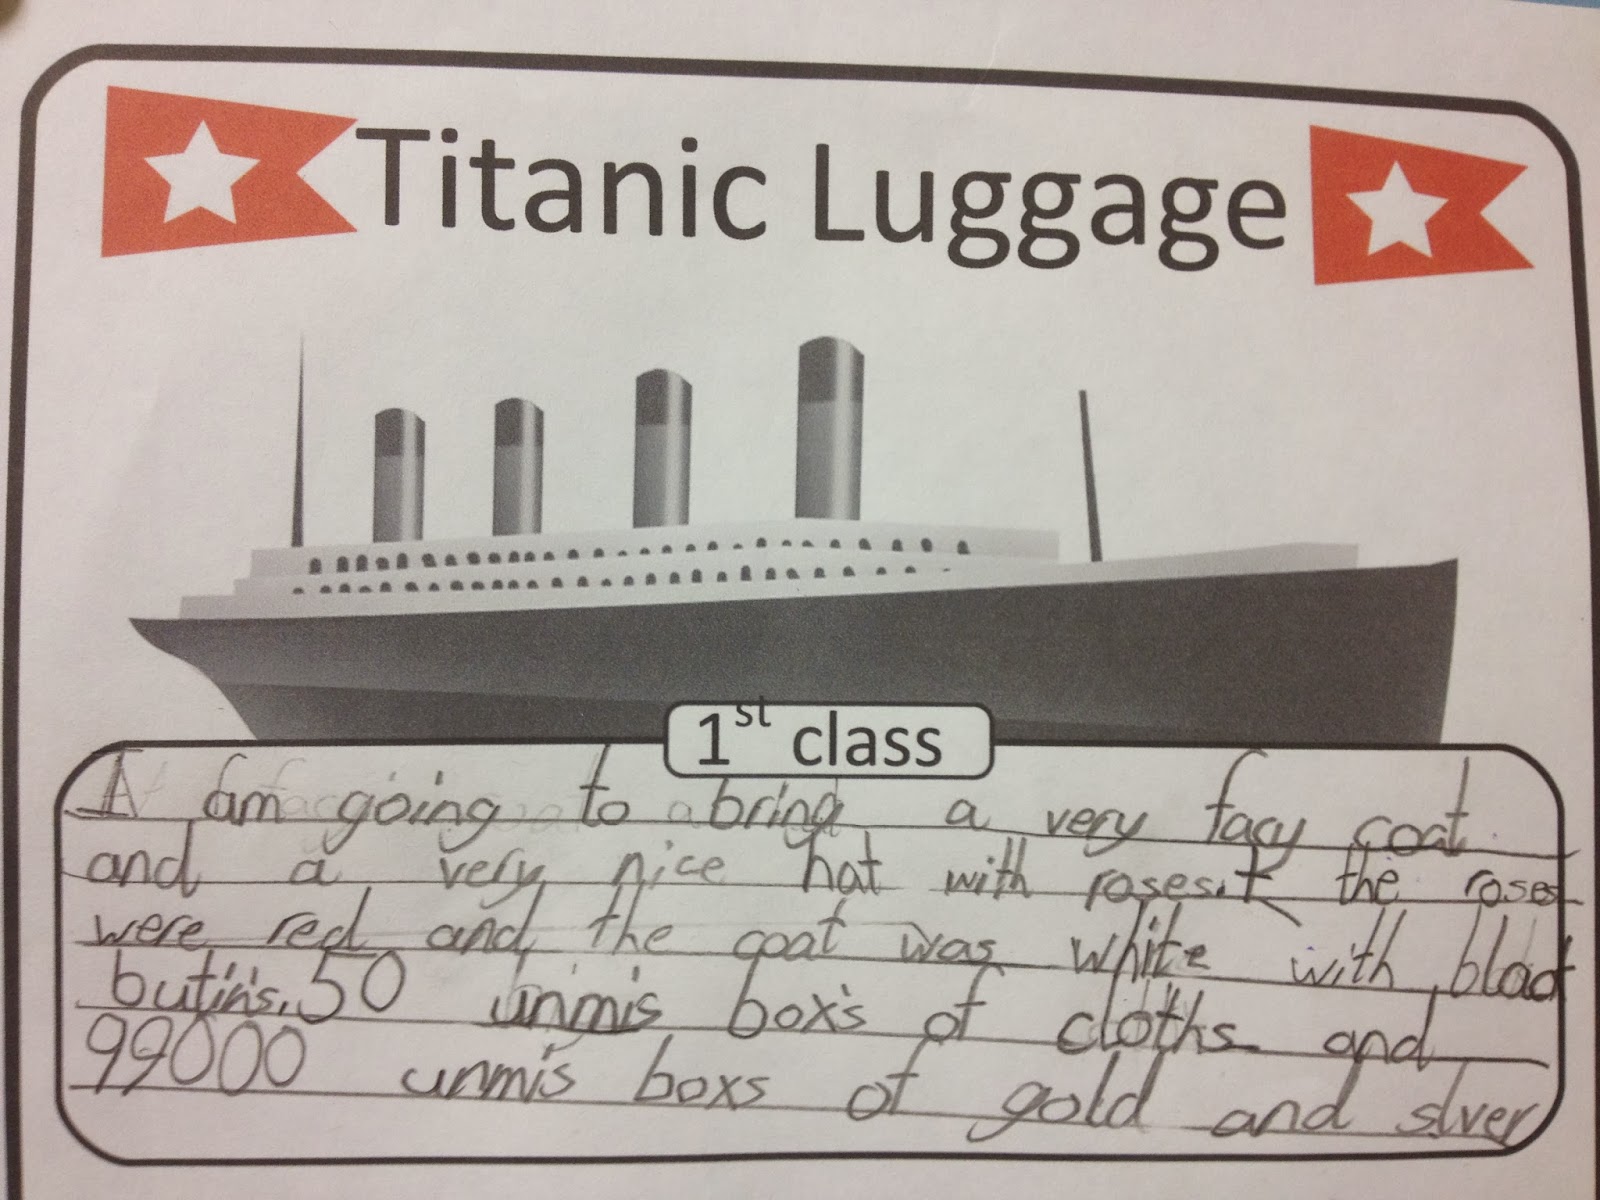 Titanic Luggage
1st class
I am going to bring a very facy coat
and a very nice hat with roses. the roses
were red and the coat was white with blact
butin's. 50 unmis box's of cloths and
99000 unmis boxs of gold and slver